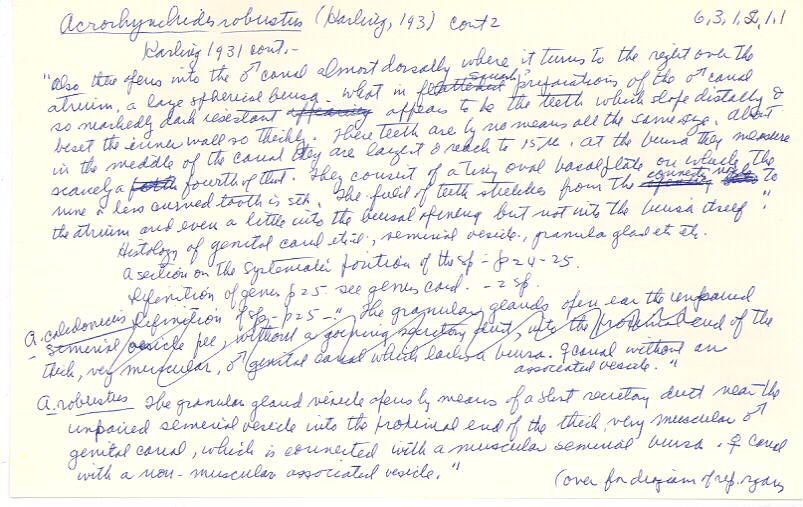 Acrorhynchides robustus (Karling, 1931) cont 2 6,3,1,2,1,1
Karling 1931 cont.-
"Also there opens into the ♂ canal almost dorsally where it turns to the right over the
atrium, a large spherical bursa. What in flattened "squash" preparations of the ♂ canal
so markedly dark resistant appearing appears to be the teeth which slope distally &
beset the inner wall so thickly. These teeth are by no means all the same size. About
in the middle of the canal they are largest & reach to 15 µ. at the bursa they measure
scarcely a forth fourth of that. They consist of a tiny oval basal plate on which the
more or less curved tooth is sth. The field of teeth stretches from the connects to
the atrium and even a little into the bursal opening but not into the bursa itself".
Histology of genital canal etc., seminal vesicle, granula gland etc.
A section on the Systematic position of the sp - p 24-25.
Definition of genus p 25. see genus card. - 2 sp.
A. caledonicus Definition of sp. - p25 - ". The granular glands open near the unpaired
seminal vesicle, without a secretory duct, into the proximal end of the
thick, very muscular, ♂ genital canal which lacks a bursa. ♀ canal without an
associated vesicle."
A. robustus The granular gland vesicle opens by means of a short secretory duct near the
unpaired seminal vesicle into the proximal end of the thick, very muscular ♂
genital canal, which is connected with a muscular seminal bursa. ♀ canal
with a non-muscular associated vesicle."
(over for diagram of rep. organs